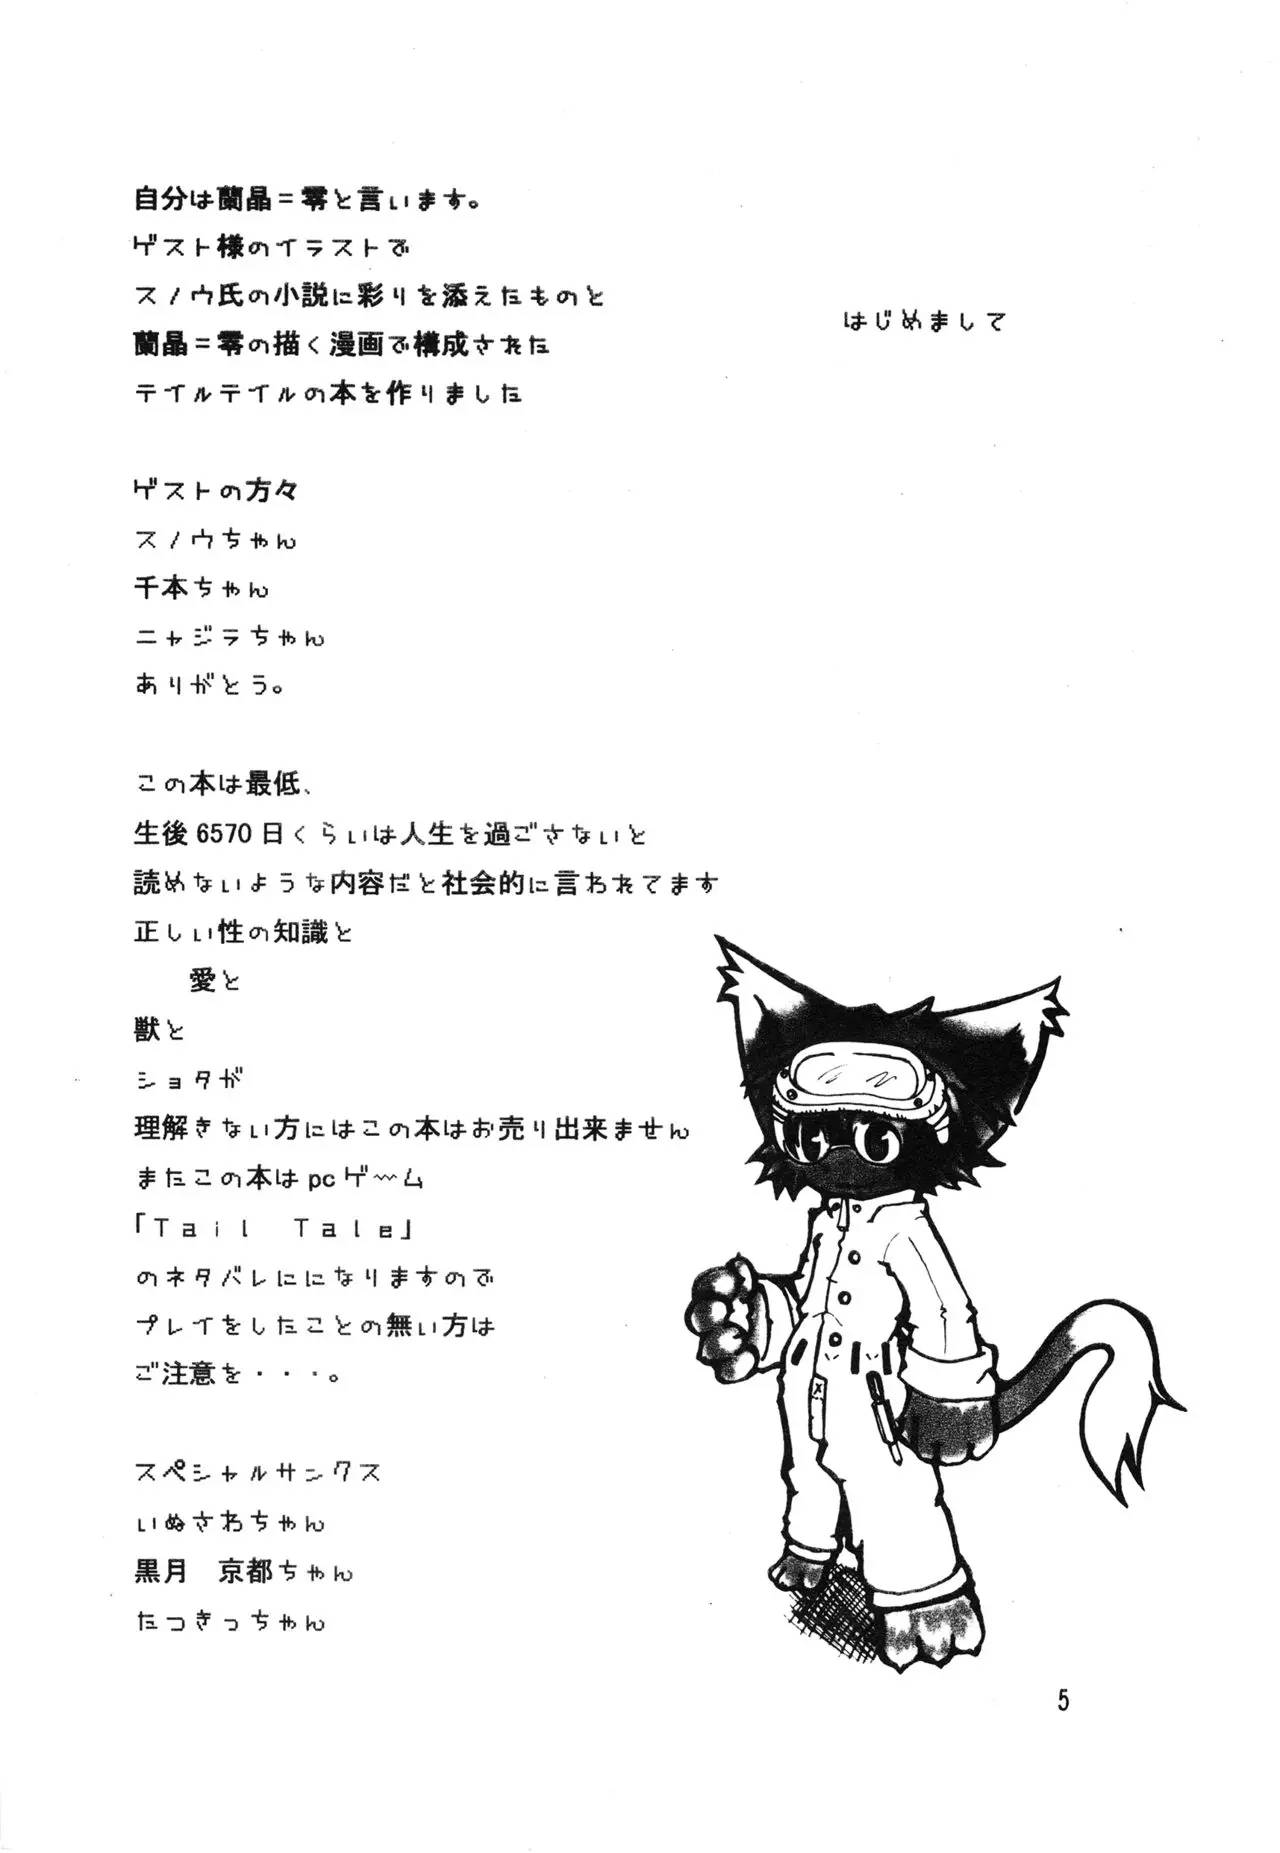 はじめまして
自分は蘭晶＝零と言います。
ゲスト様のイラストで
スノウ氏の小説に彩りを添えたものと
蘭晶＝零の描く漫画で構成された
テイルテイルの本を作りました
ゲストの方々
スノウちゃん
千本ちゃん
ニャジラちゃん
ありがとう。
この本は最低、
生後6570日くらいは人生を過ごさないと
読めないような内容だと社会的に言われてます
正しい性の知識と
愛と
獣と
ショタが
理解きない方にはこの本はお売り出来ません
またこの本はpcゲ〜ム
「Tail Tale」
のネタバレにになりますので
プレイをしたことの無い方は
ご注意を・・・。
スペシャルサンクス
いぬさわちゃん
黒月　京都ちゃん
たつきっちゃん
5